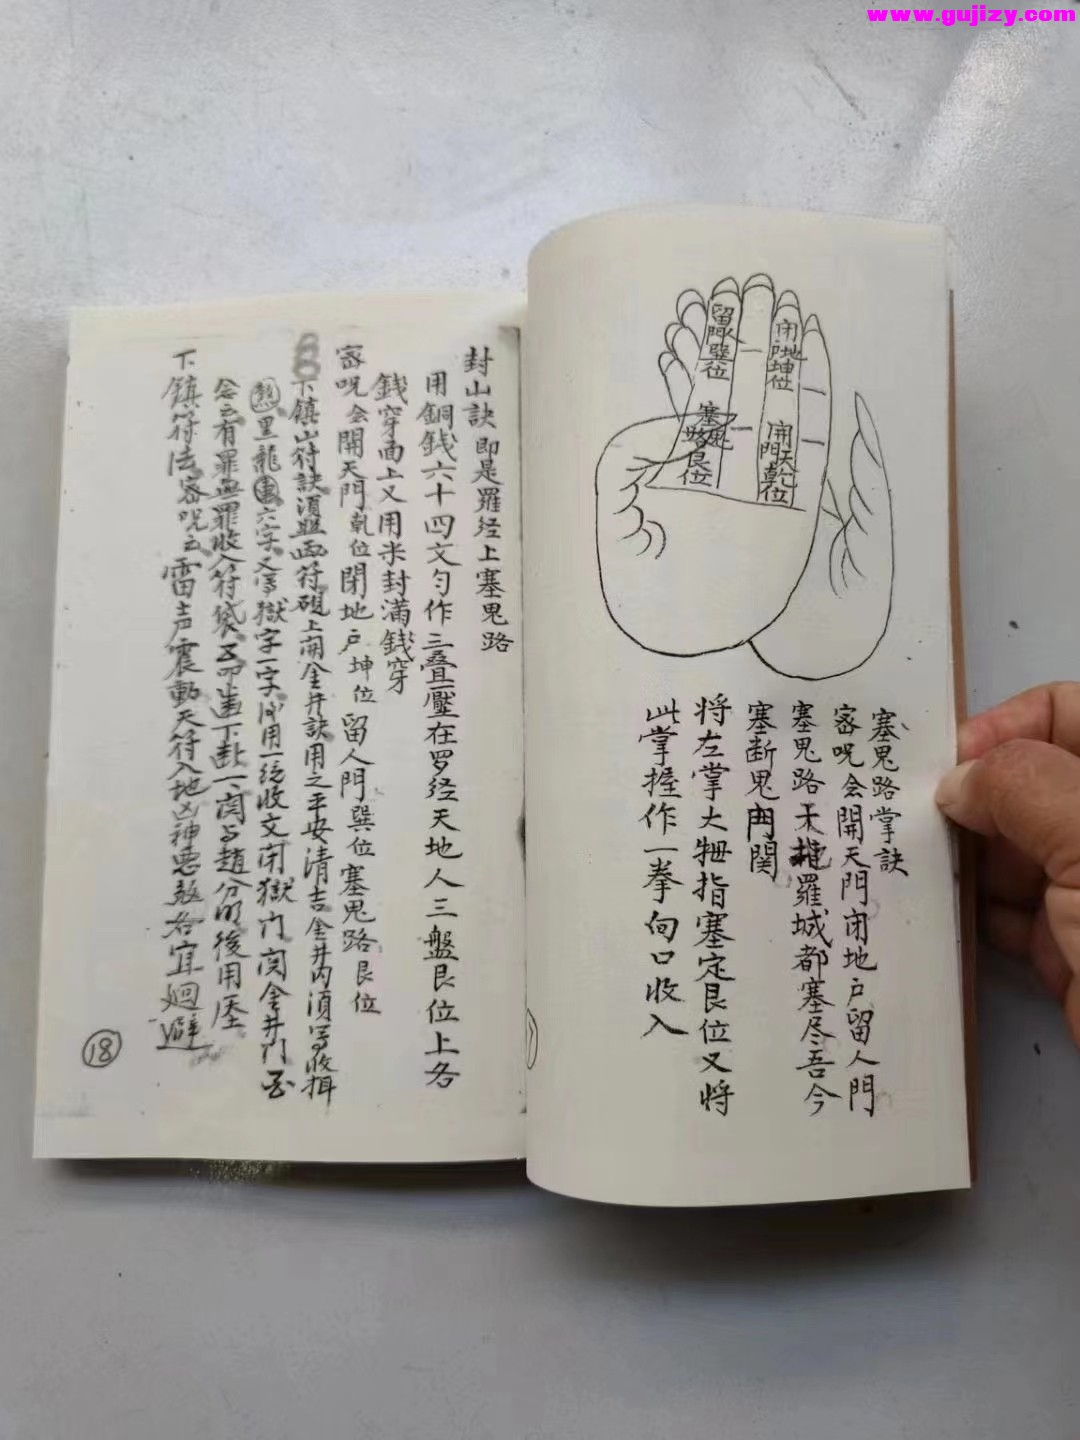 www.gujizy.com
留人門巽位
閉地户坤位
塞鬼路艮位
開天門乾位
塞鬼路掌訣
密呪会開天門闭地户留人門
塞鬼路天地羅城都塞尽吾今
塞断鬼門関
将左掌大拇指塞定艮位又将
此掌握作一拳向口收入
封山訣即是羅经上塞鬼路
用銅錢六十四文勻作三叠壓在罗经天地人三盤艮位上各
錢穿面上又用米封滿錢穿
密呪会開天門乾位閉地户坤位留人門巽位塞鬼路艮位
下鎮山符訣須盟画符硯上開金井訣用之平安清吉金井内須写收
黑龍六字又写獄字一字用一纸收文闭獄门関金井门
念云有罪無罪收入符袋下一関与趙分明後用
下鎮符法密呪云雷声震動天符入地凶神悪煞各宜廻避
18